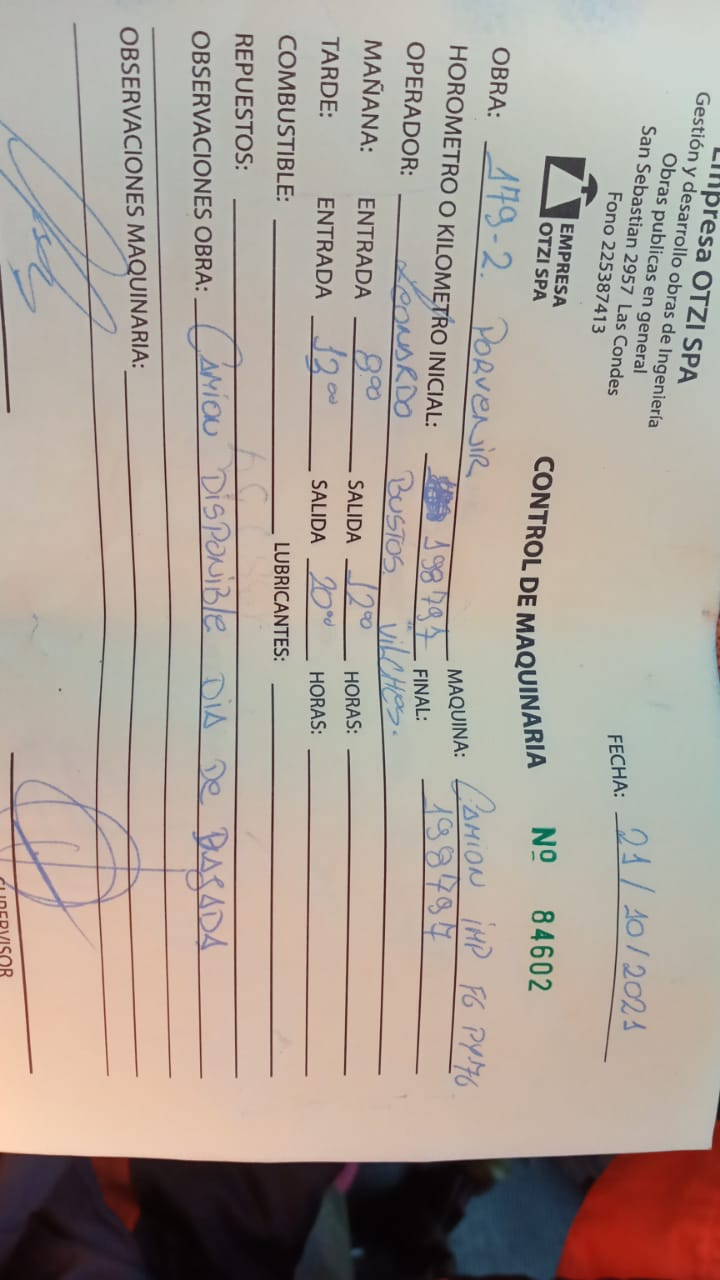 Empresa OTZI SPA
Gestión y desarrollo obras de Ingeniería
Obras publicas en general
San Sebastian 2957 Las Condes
Fono 225387413
EMPRESA
OTZI SPA
FECHA: 21/10/2021
CONTROL DE MAQUINARIA Nº 84602
OBRA: 179-2. PORVENIR MAQUINA: CAMION IMP FG PY76
HOROMETRO O KILOMETRO INICIAL: 198797 FINAL: 198797
OPERADOR: LEONARDO BUSTOS VILCHES.
MAÑANA: ENTRADA 8:00 SALIDA 12:00 HORAS:
TARDE: ENTRADA 13:00 SALIDA 20:00 HORAS:
COMBUSTIBLE: LUBRICANTES:
REPUESTOS:
OBSERVACIONES OBRA: CAMION DISPONIBLE DIA DE BAJADA
OBSERVACIONES MAQUINARIA:
SUPERVISOR